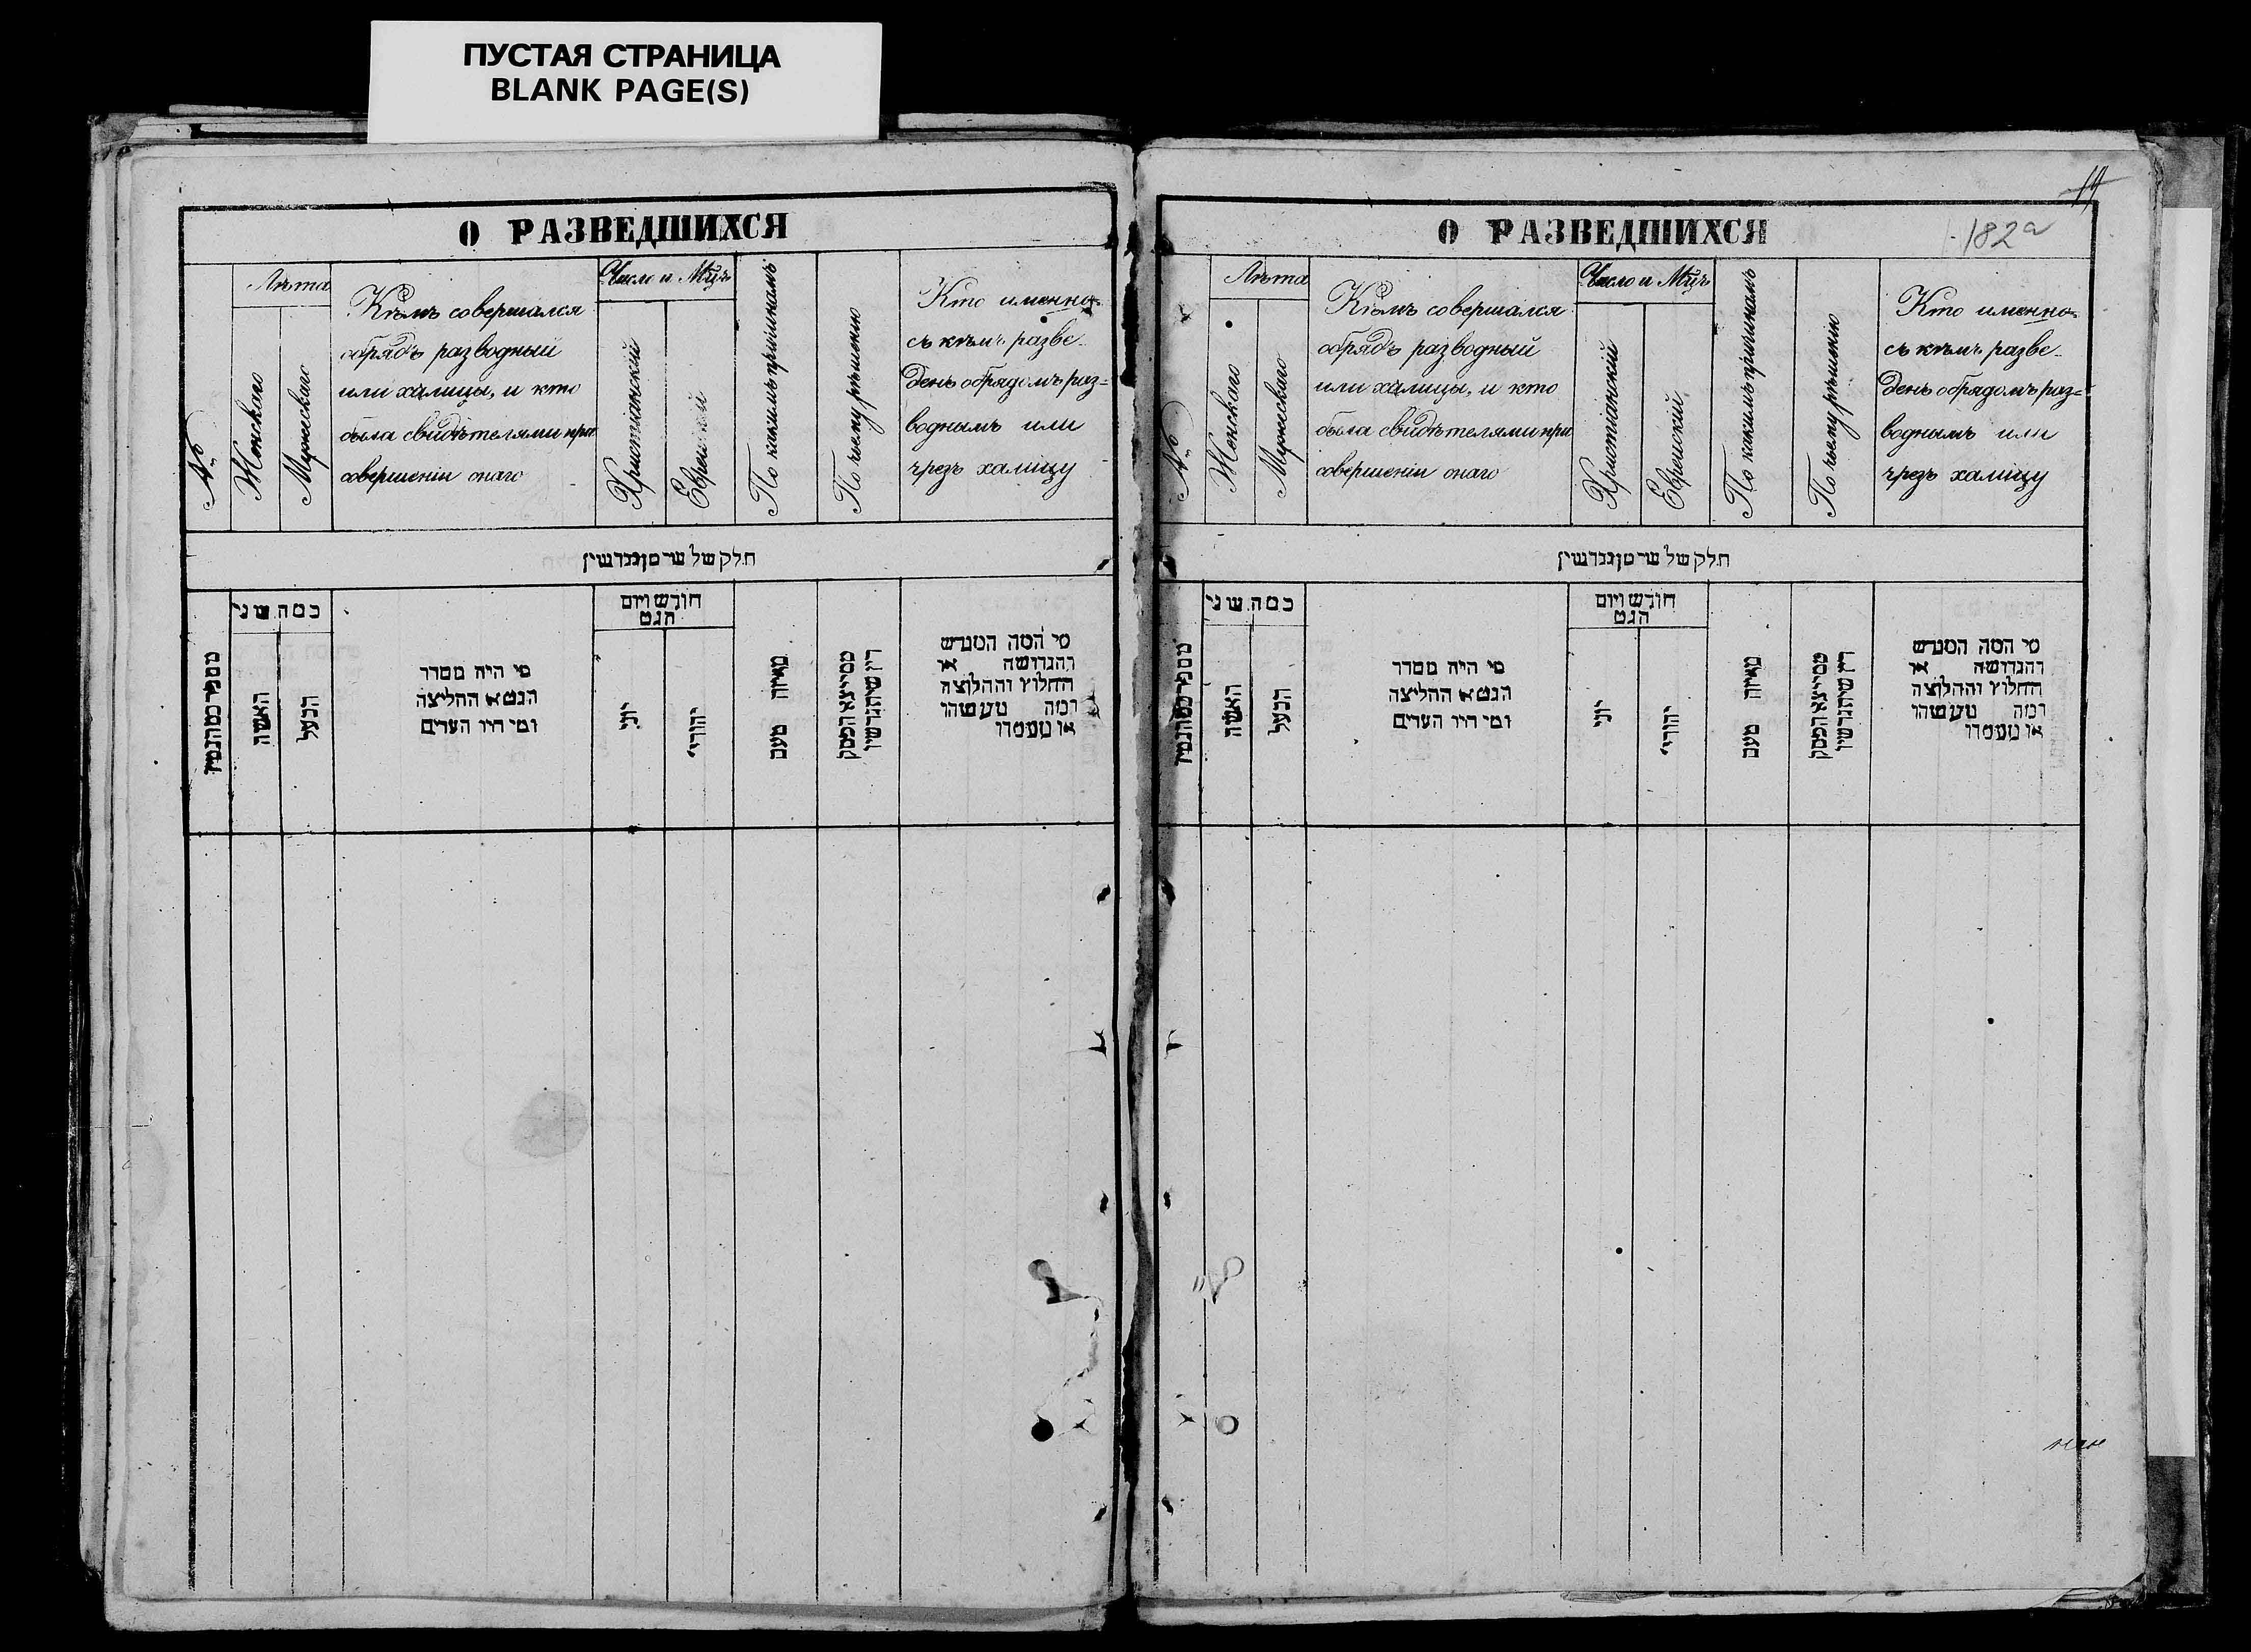 ПУСТАЯ СТРАНИЦА
BLANK PAGE(S)
О РАЗВЕДШИХСЯ
№
Лѣта
Женскаго
Мужескаго
Кѣмъ совершался
обрядъ разводный
или халицы, и кто
была свидѣтелями при
совершеніи онаго
Число и Мцъ
Христіанскій
Еврейскій
По какимъ причинамъ
По чьему рѣшенію
Кто именно
съ кѣмъ разве-
денъ обрядомъ раз=
воднымъ или
чрезъ халицу
חלק של
כמה שני
האשה
הבעל
מי היה מסדר
הגט א ההליצה
ומי היו העדים
חודש ויום
הגט
יוני
יהודי
מאיזה טעם
מי המה המגרש
והגרושה או
החלוץ והחלוצה
ומה מעשהו
או מעמדו
О РАЗВЕДШИХСЯ
182а
№
Лѣта
Женскаго
Мужескаго
Кѣмъ совершался
обрядъ разводный
или халицы, и кто
была свидѣтелями при
совершеніи онаго
Число и Мцъ
Христіанскій
Еврейскій
По какимъ причинамъ
По чьему рѣшенію
Кто именно
съ кѣмъ разве-
денъ обрядомъ раз=
воднымъ или
чрезъ халицу
חלק של
כמה שני
האשה
הבעל
מי היה מסדר
הגט א ההליצה
ומי היו העדים
חודש ויום
הגט
יוני
יהודי
מאיזה טעם
מי המה המגרש
והגרושה או
החלוץ והחלוצה
ומה מעשהו
או מעמדו